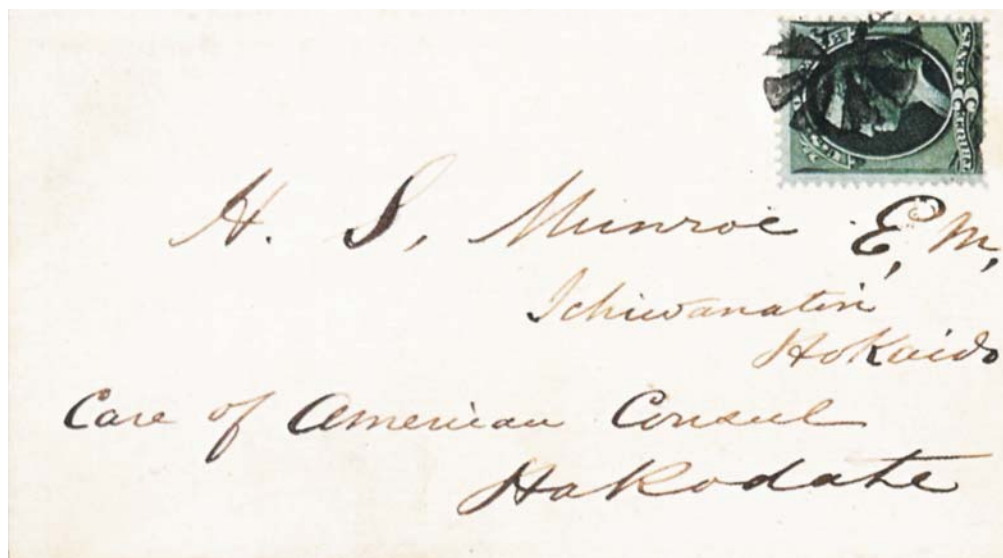 H. S. Munroe E, M,
Ichiwanatin
Hokaido
Care of American Consul
Hakodate